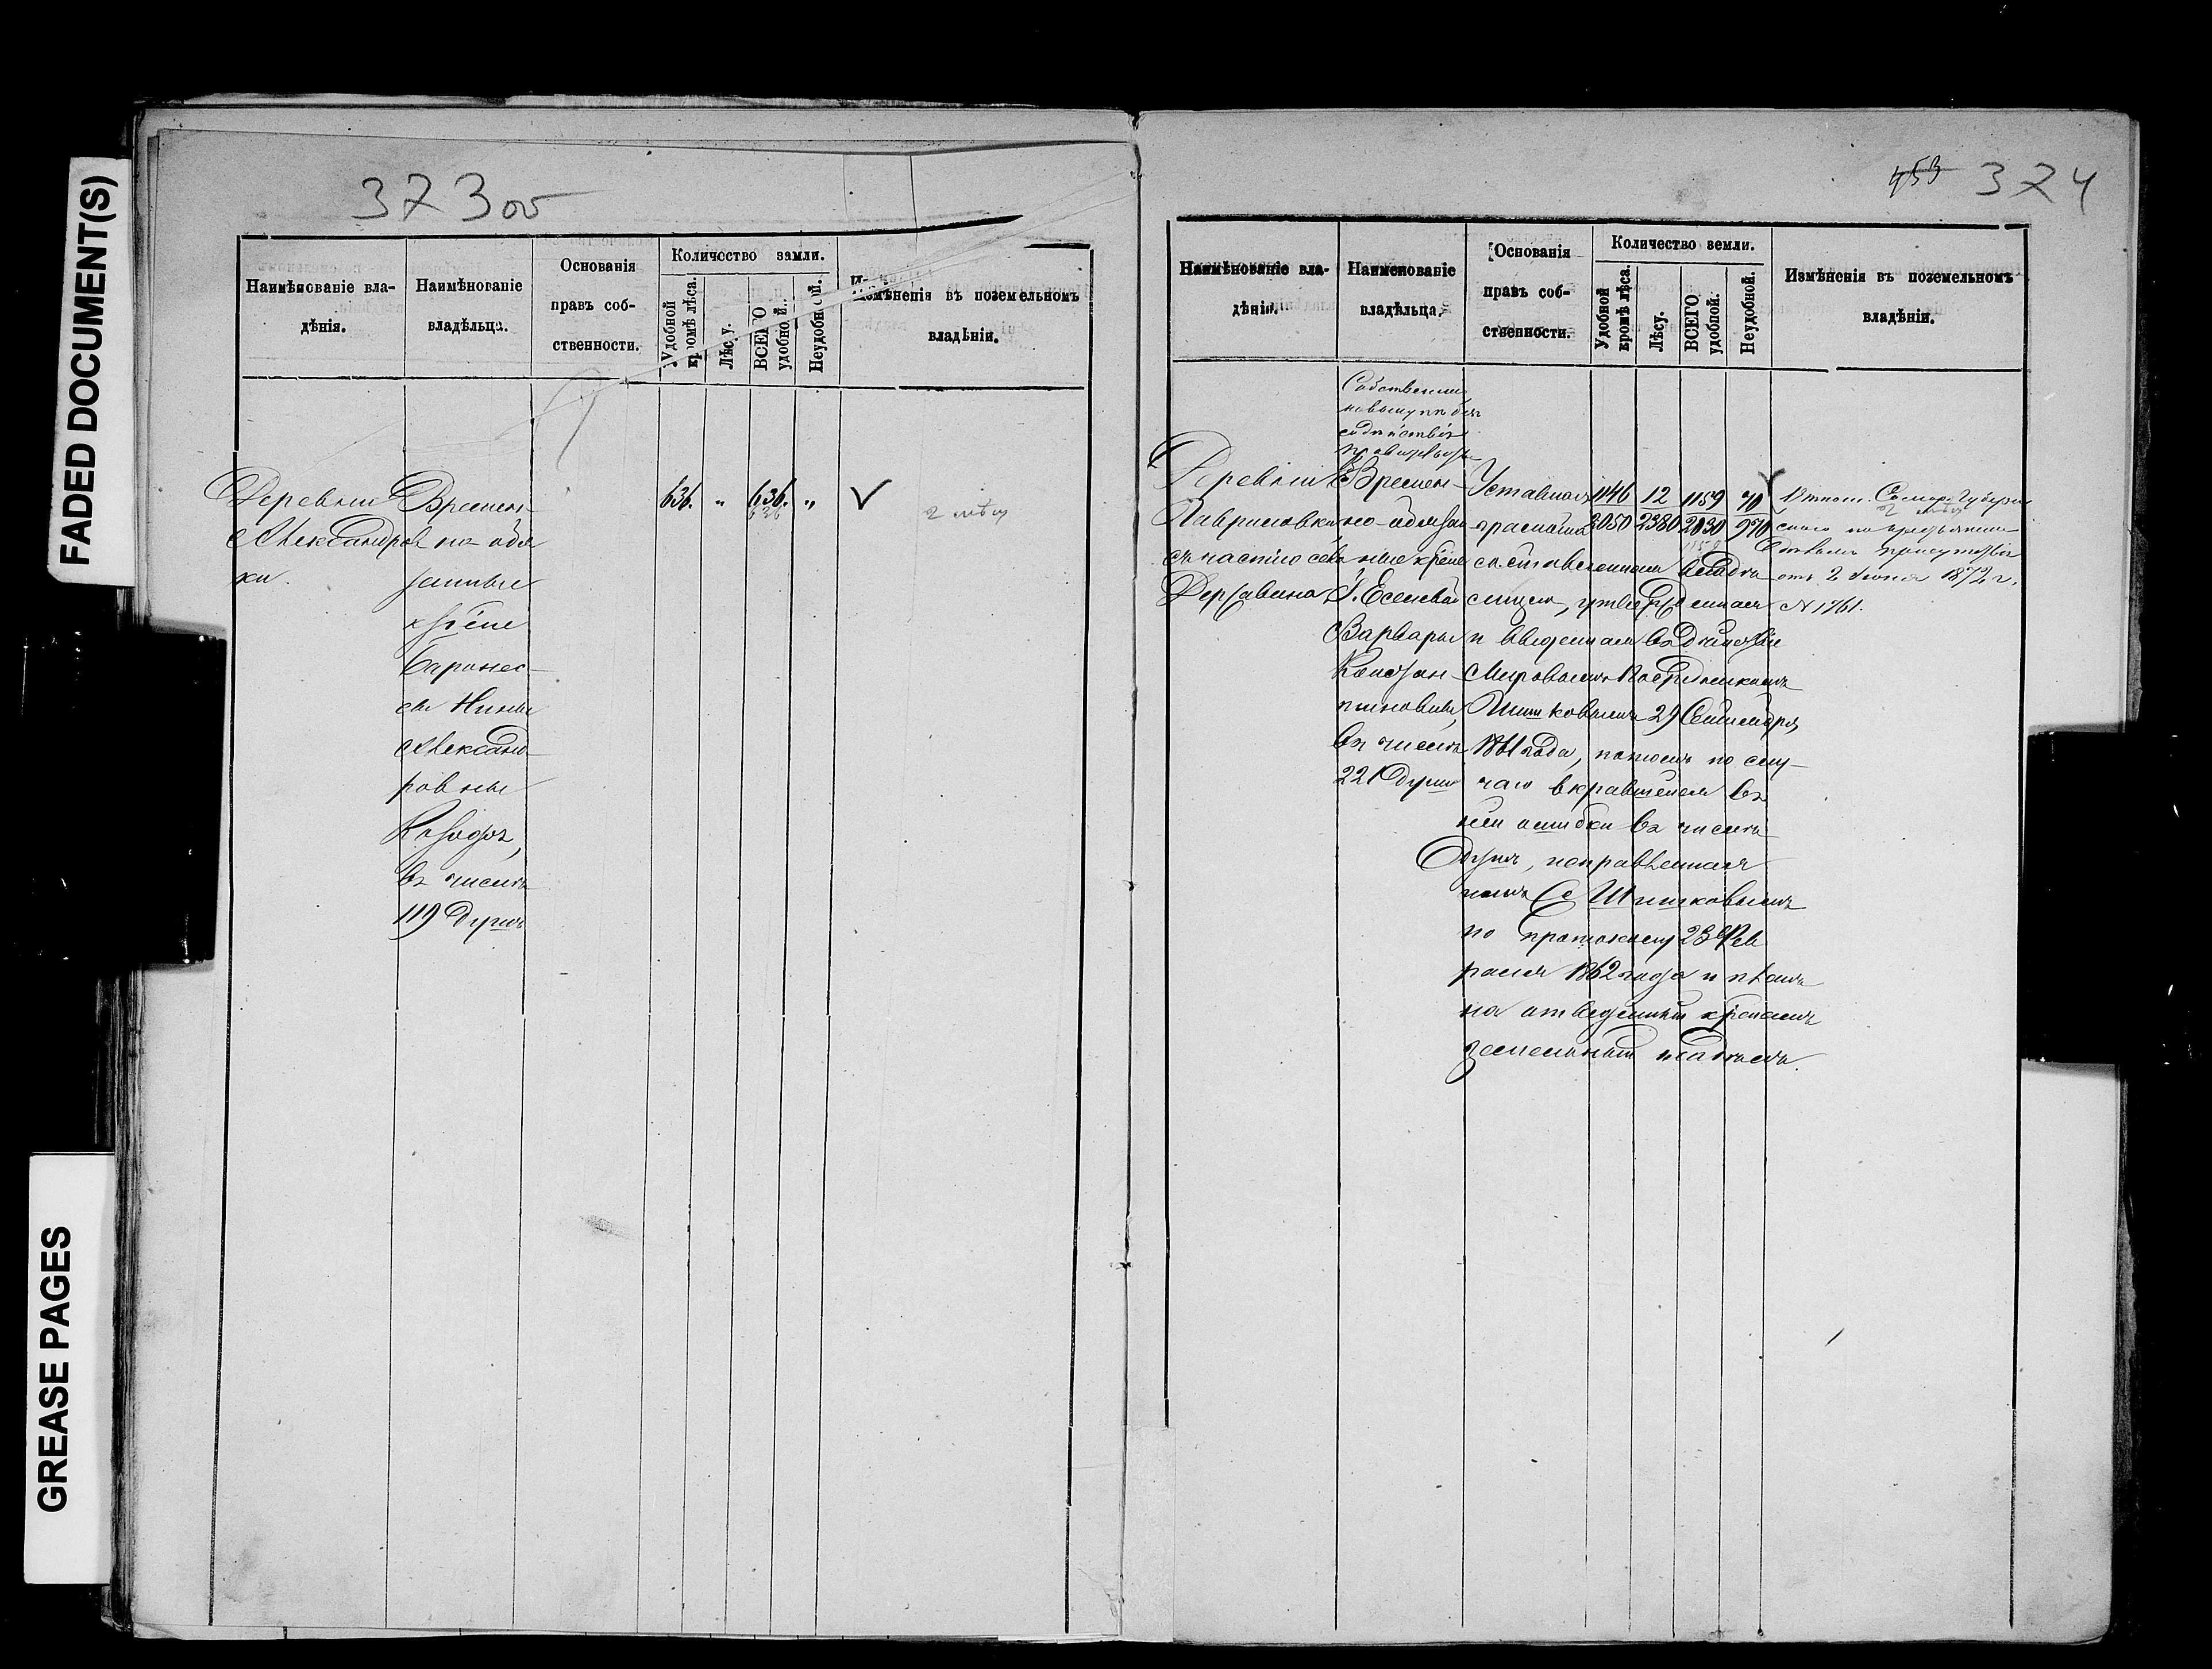 FADED DOCUMENT(S)
GREASE PAGES
323 об
Наимѣнованіе вла-
дѣнія.
Наимѣнованіе
владѣльца.
Основанія
правъ соб-
ственности.
Количество земли.
Удобной
кромѣ лѣса.
Лѣсу.
ВСЕГО
удобной.
Неудобной.
Измѣненія въ поземельномъ
владѣніи.
Деревни
Александров
ки.
Времен-
но-обя
занные
кр-не
Баронес-
сы Нины
Александ-
ровны
въ числѣ
119 душъ
636. " 636. "
636
453 324
Наимѣнованіе вла-
дѣнія.
Наименованіе
владѣльца.
Основанія
правъ соб-
ственности.
Количество земли.
Удобной
кромѣ лѣса.
Лѣсу.
ВСЕГО
удобной.
Неудобной.
Измѣненія въ поземельномъ
владѣніи.
Деревни
Гавриловки
съ частію села
Державина
Собственни
содѣйствія
Времен-
но-обязан
ные кр-не
Г. Есеневой
Варвары
Констан-
тиновны,
въ числѣ
221 души
Уставная
грамата
составленная владѣ
лицею, утвержденная
и введенная въ дѣйствіе
Мировымъ Посредникомъ
Шишковымъ 29 Сентября
1861 года, потомъ по слу-
чаю вкравшейся въ
ней ошибки въ числѣ
душъ, исправленная
имъ же Шишковымъ
по протоколу 23 Фев
раля 1862 года и планъ
на отведенный кр-намъ
земельный надѣлъ.
1146 12 1159 70
2050 2380 2030 970
1159
отъ 2 Іюня 1872 г.
№ 1761.